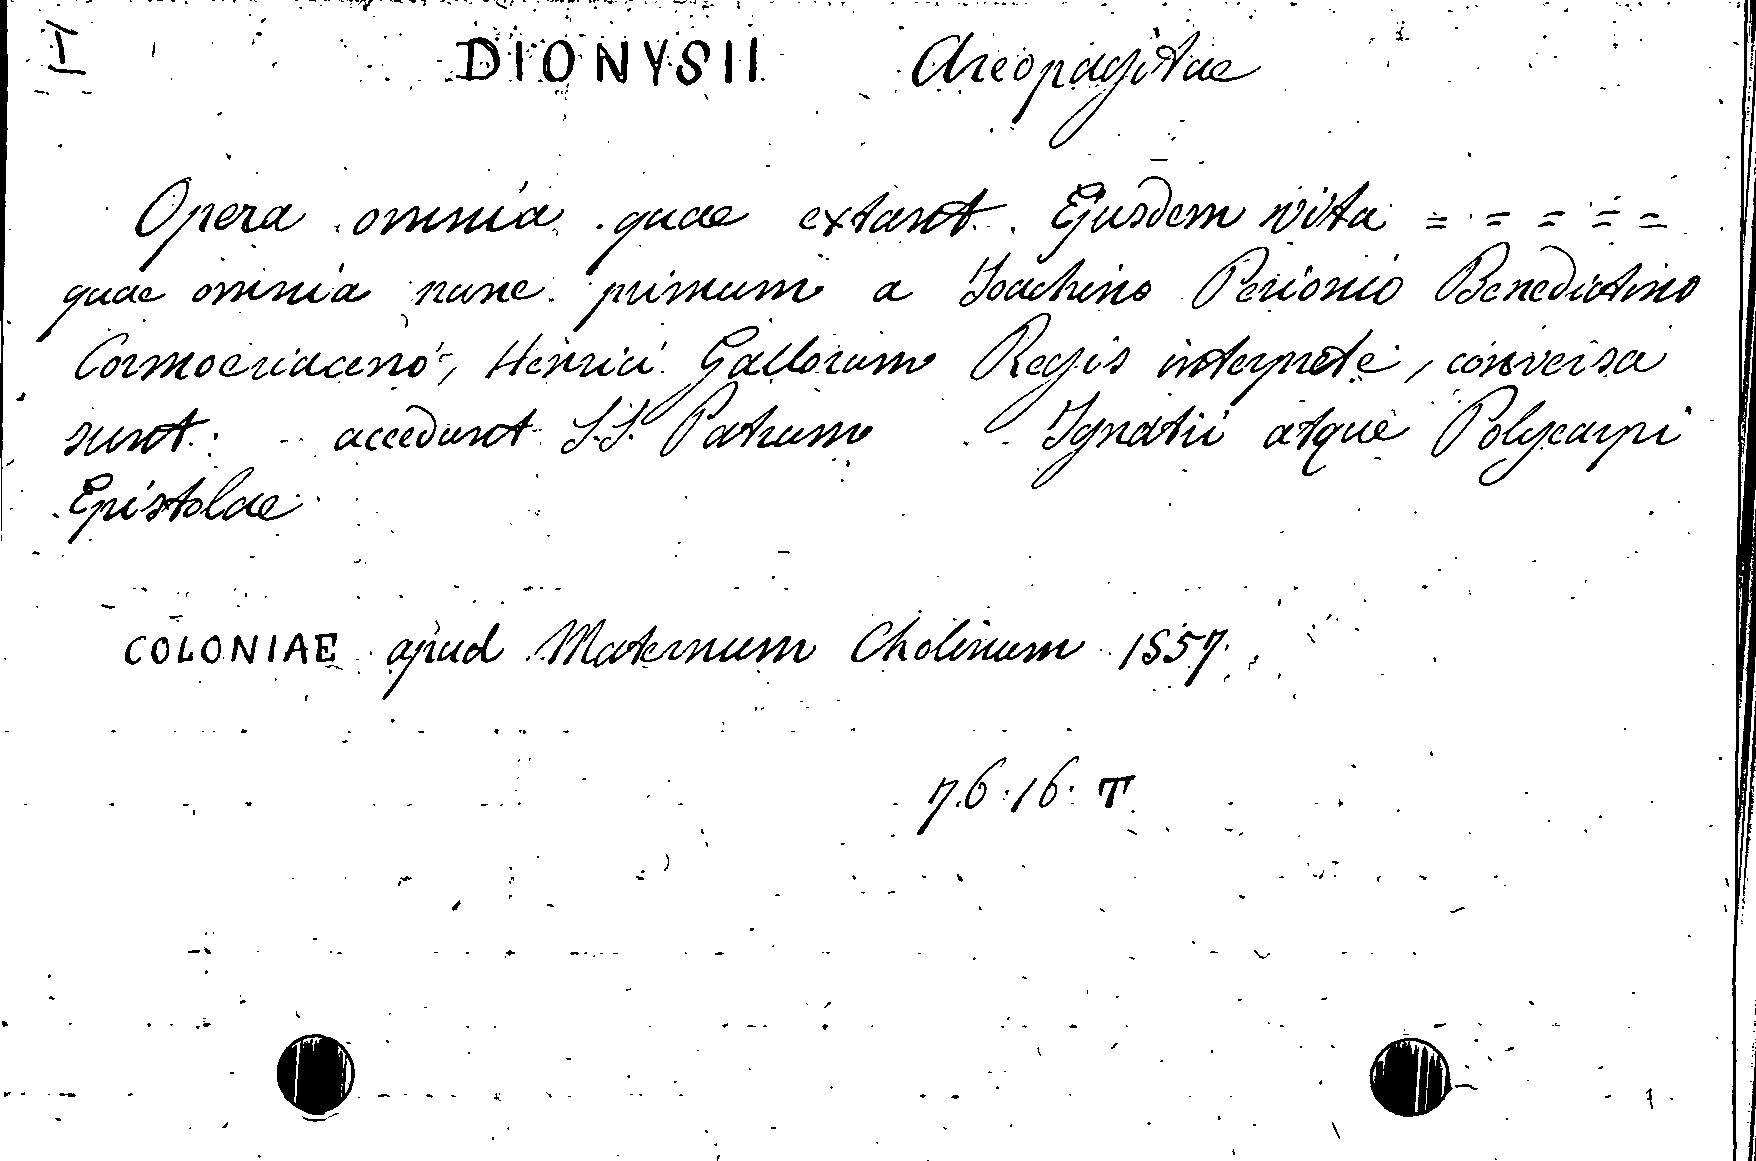 I DIONYSII Areopagitae
Opera omnia quae extant. Ejusdem vita = = = = =
quae omnia nunc primum a Joachino Perionio Benedictino
Cormoeriaceno, Henrici Gallorum Regis interprete, conversa
sunt: accedunt S.S. Patrum Ignatii atque Polycarpi
Epistolae
COLONIAE apud Maternum Cholinum 1557.
7.6.16. T